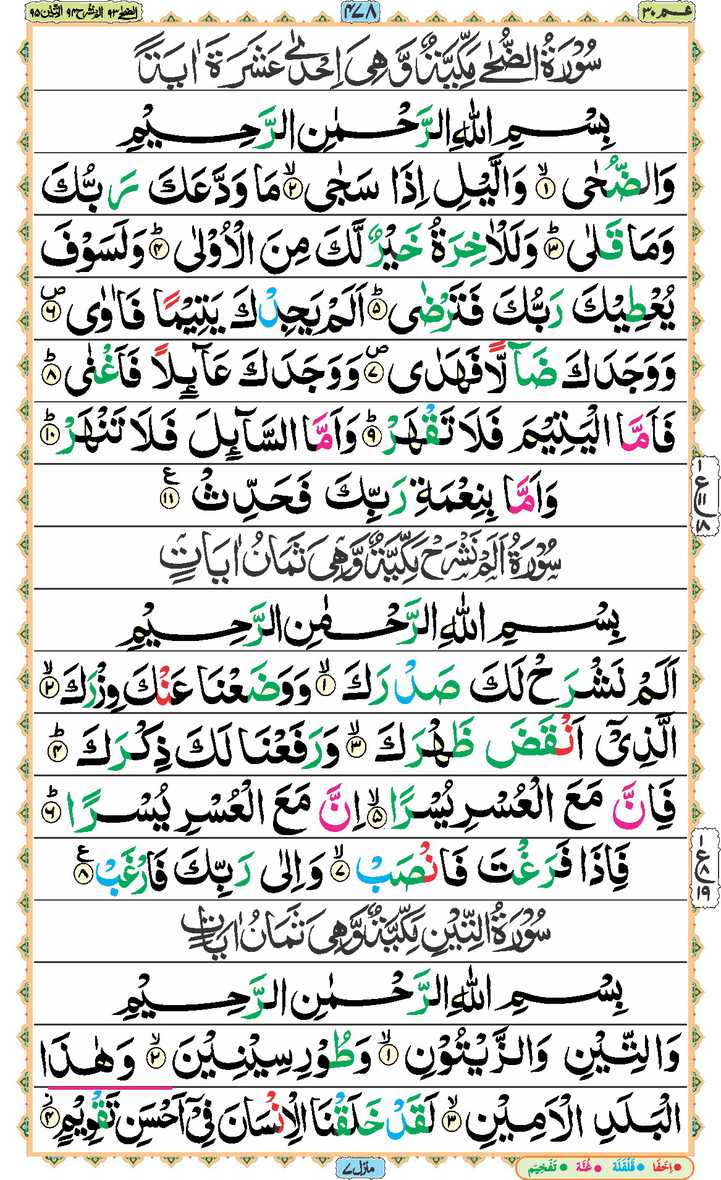 عـمـ ۳۰
۴۷۸
الضحٰی ۹۳ الم نشرح ۹۴ التین ۹۵
سُوْرَةُ الضُّحٰى مَكِّيَّةٌ وَّهِىَ اِحْدٰى عَشَرَةَ اٰيَةً
بِسْمِ اللّٰهِ الرَّحْمٰنِ الرَّحِيْمِ
وَالضُّحٰى ۙ‏﴿۱﴾ وَالَّيْلِ اِذَا سَجٰى ۙ‏﴿۲﴾ مَا وَدَّعَكَ رَبُّكَ
وَمَا قَلٰى ؕ‏﴿۳﴾ وَلَلْاٰخِرَةُ خَيْرٌ لَّكَ مِنَ الْاُوْلٰى ؕ‏﴿۴﴾ وَلَسَوْفَ
يُعْطِيْكَ رَبُّكَ فَتَرْضٰى ؕ‏﴿۵﴾ اَلَمْ يَجِدْكَ يَتِيْمًا فَاٰوٰى ۪‏﴿۶﴾
وَوَجَدَكَ ضَآلًّا فَهَدٰى ۪‏﴿۷﴾ وَوَجَدَكَ عَآٮِٕلًا فَاَغْنٰى ؕ‏﴿۸﴾
فَاَمَّا الْيَتِيْمَ فَلَا تَقْهَرْ ؕ‏﴿۹﴾ وَاَمَّا السَّآٮِٕلَ فَلَا تَنْهَرْ ؕ‏﴿۱۰﴾
وَاَمَّا بِنِعْمَةِ رَبِّكَ فَحَدِّثْ ‏﴿۱۱﴾ ع
۱ ع ۱۱ ۱۸
سُوْرَةُ اَلَمْ نَشْرَحْ مَكِّيَّةٌ وَّهِىَ ثَمَانُ اٰيَاتٍ
بِسْمِ اللّٰهِ الرَّحْمٰنِ الرَّحِيْمِ
اَلَمْ نَشْرَحْ لَكَ صَدْرَكَ ۙ‏﴿۱﴾ وَوَضَعْنَا عَنْكَ وِزْرَكَ ۙ‏﴿۲﴾
الَّذِىْۤ اَنْقَضَ ظَهْرَكَ ۙ‏﴿۳﴾ وَرَفَعْنَا لَكَ ذِكْرَكَ ؕ‏﴿۴﴾
فَاِنَّ مَعَ الْعُسْرِ يُسْرًا ۙ‏﴿۵﴾ اِنَّ مَعَ الْعُسْرِ يُسْرًا ؕ‏﴿۶﴾
فَاِذَا فَرَغْتَ فَانْصَبْ ۙ‏﴿۷﴾ وَاِلٰى رَبِّكَ فَارْغَبْ ‏﴿۸﴾ ع
۱ ع ۸ ۱۹
سُوْرَةُ التِّيْنِ مَكِّيَّةٌ وَّهِىَ ثَمَانُ اٰيَاتٍ
بِسْمِ اللّٰهِ الرَّحْمٰنِ الرَّحِيْمِ
وَالتِّيْنِ وَالزَّيْتُوْنِ ۙ‏﴿۱﴾ وَطُوْرِ سِيْنِيْنَ ۙ‏﴿۲﴾ وَهٰذَا
الْبَلَدِ الْاَمِيْنِ ۙ‏﴿۳﴾ لَقَدْ خَلَقْنَا الْاِنْسَانَ فِىْۤ اَحْسَنِ تَقْوِيْمٍ ‏﴿۴﴾
منزل ۷
• اِخْفَا • قَلْقَلَه • غُنَّه • تَفْخِيْم